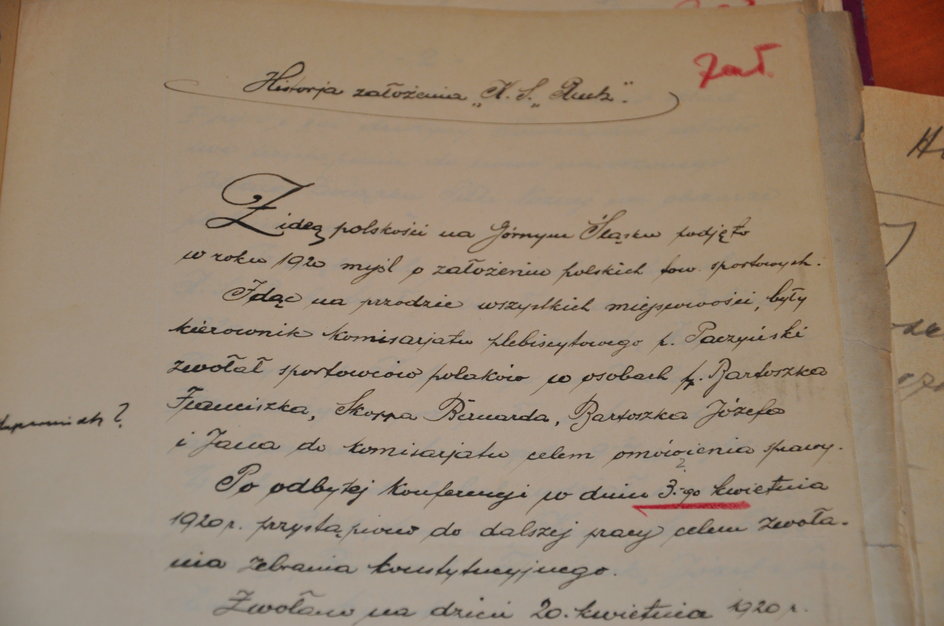 Historja założenia „K. S. „Ruch".
Zał.
Z ideą polskości na Górnym Śląsku podjęto
w roku 1920 myśl o założeniu polskich tow. sportowych.
Idąc na przodzie wszystkich miejscwości, były
kierownik komisarjatu plebiscytowego p. Paczyński
zwołał sportowców polaków w osobach p. Bartoszka
Franciszka, Skoppa Bernarda, Bartoszka Józefa
i Jana do komisarjatu celem omówienia sprawy.
Po odbytej konferencji w dniu 3.-go kwietnia
1920 r. przystąpiono do dalszej pracy celem zwoła-
nia zebrania konstytucyjnego.
Zwołano na dzień 20. kwietnia 1920 r.